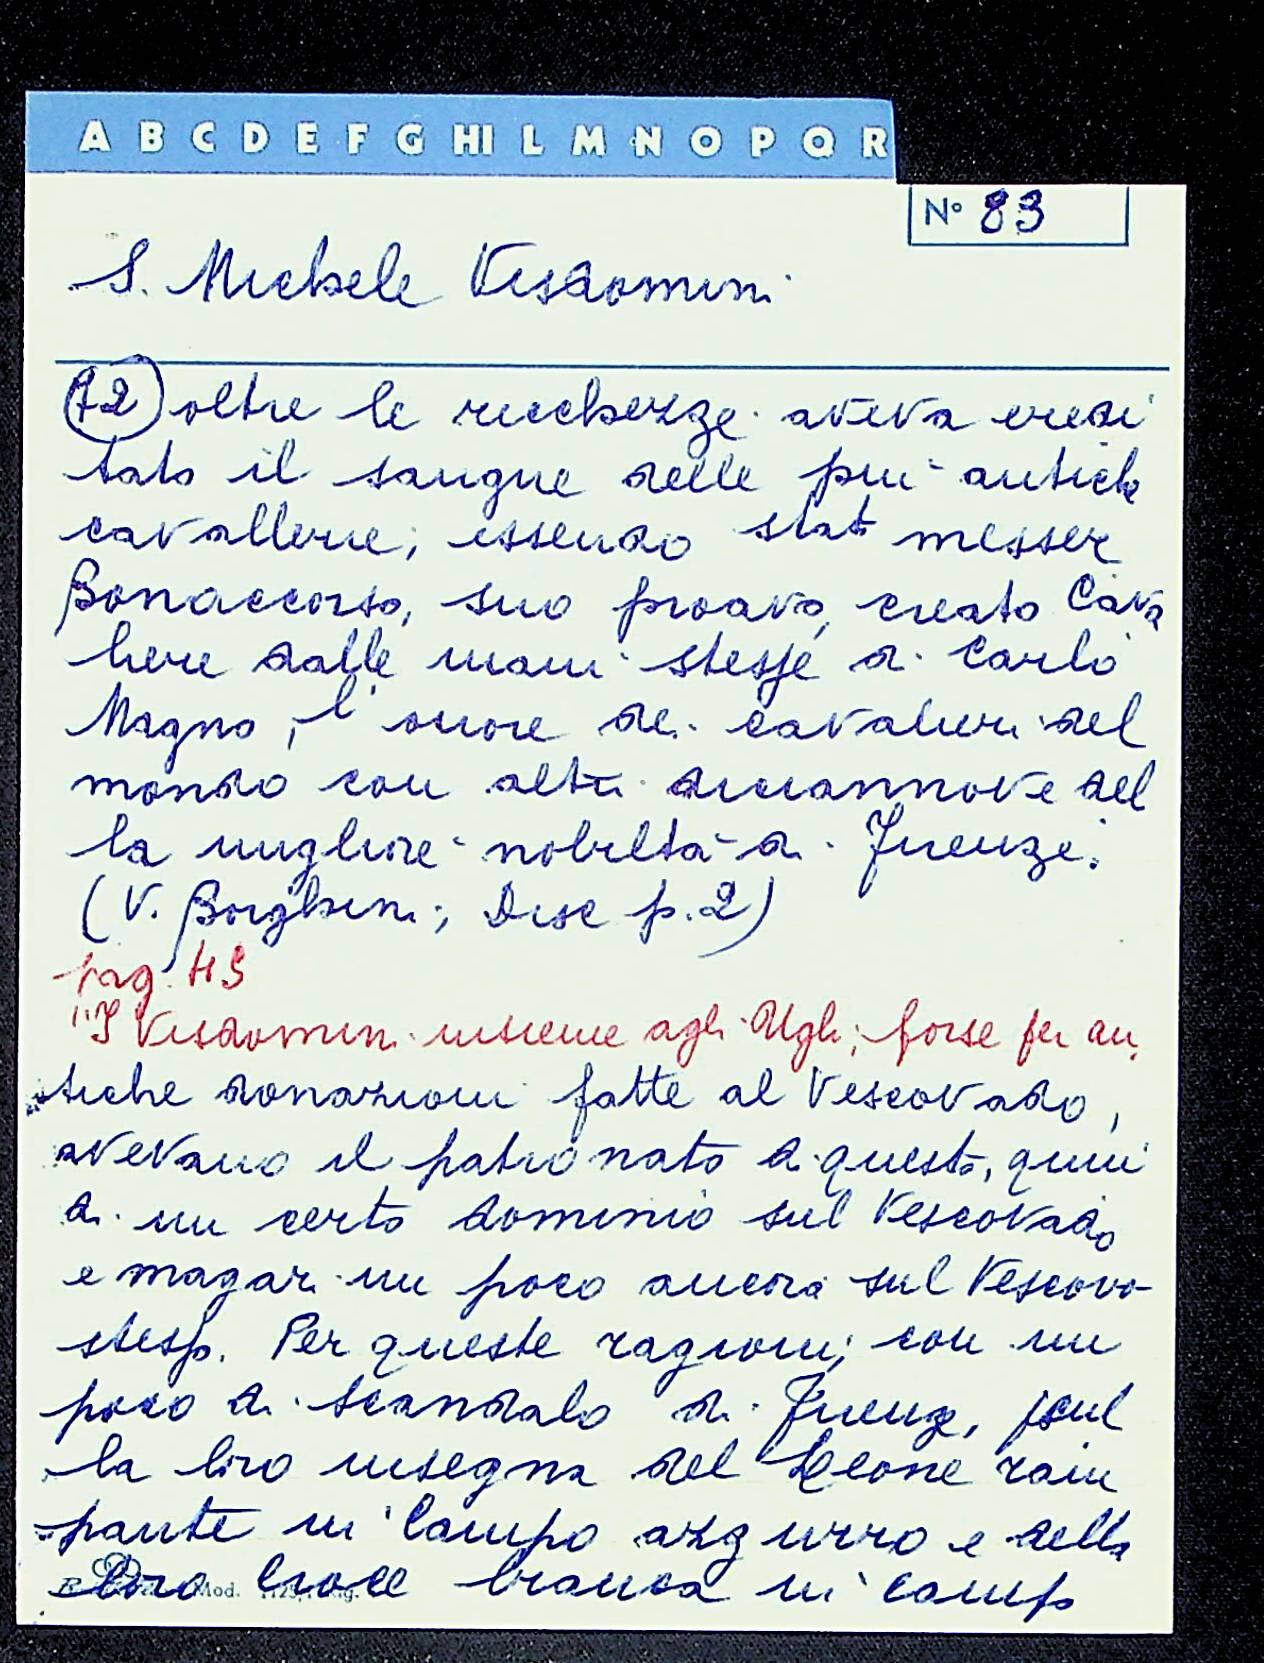 A B C D E F G HI L M N O P Q R
N° 83
S. Michele Visdomini
12) oltre le ricchezze aveva eredi
tato il sangue delle più antiche
cavallerie; essendo stato messer
Bonaccorso, suo proavo, creato Cava
liere dalle mani stesse di Carlo
Magno, l'onore dei cavalieri del
mondo con altri diciannove del
la migliore nobiltà di Firenze.
(V. Borghini, Disc p. 2)
pag.
"I Visdomini insieme agli Ughi, forse per an
tiche donazioni fatte al Vescovado,
avevano il patronato di questo, quin
di un certo dominio sul Vescovado
e magari un poco ancora sul Vescovo
stesso. Per queste ragioni, con un
poco di scandalo di Firenze, sul
la loro insegna del Leone ram
pante in campo azzurro e della
loro croce bianca in campo
Mod.